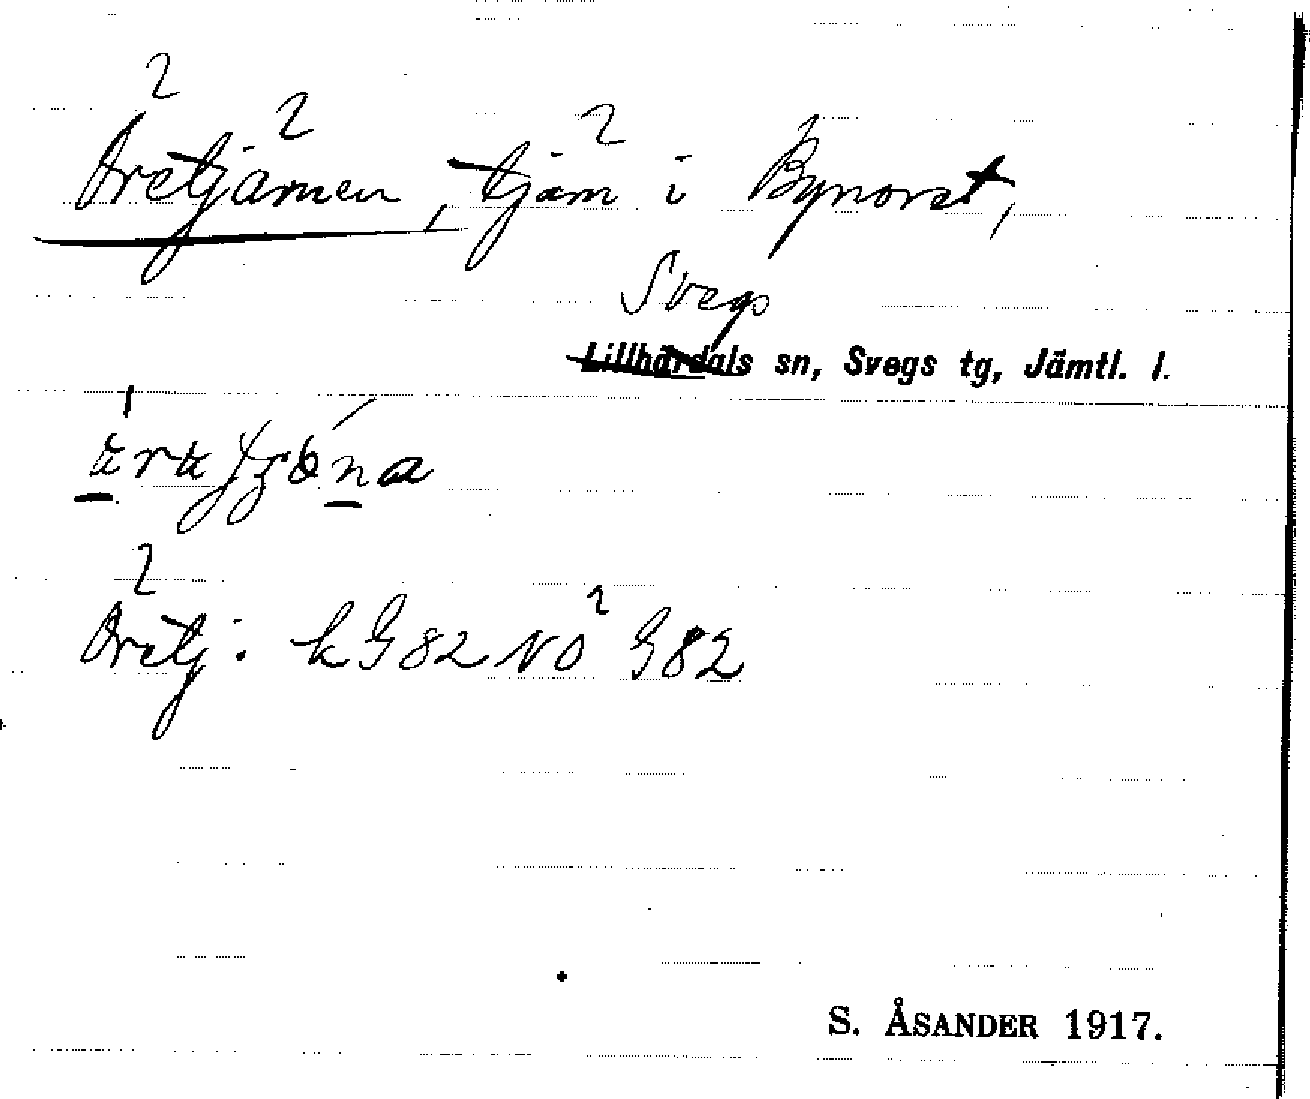 Öretjärnen, tjärn i Bynoret,
Svegs
Lillhärdals sn, Svegs tg, Jämtl. l.
Öretj: k G 82 NO G 82
S. ÅSANDER 1917.